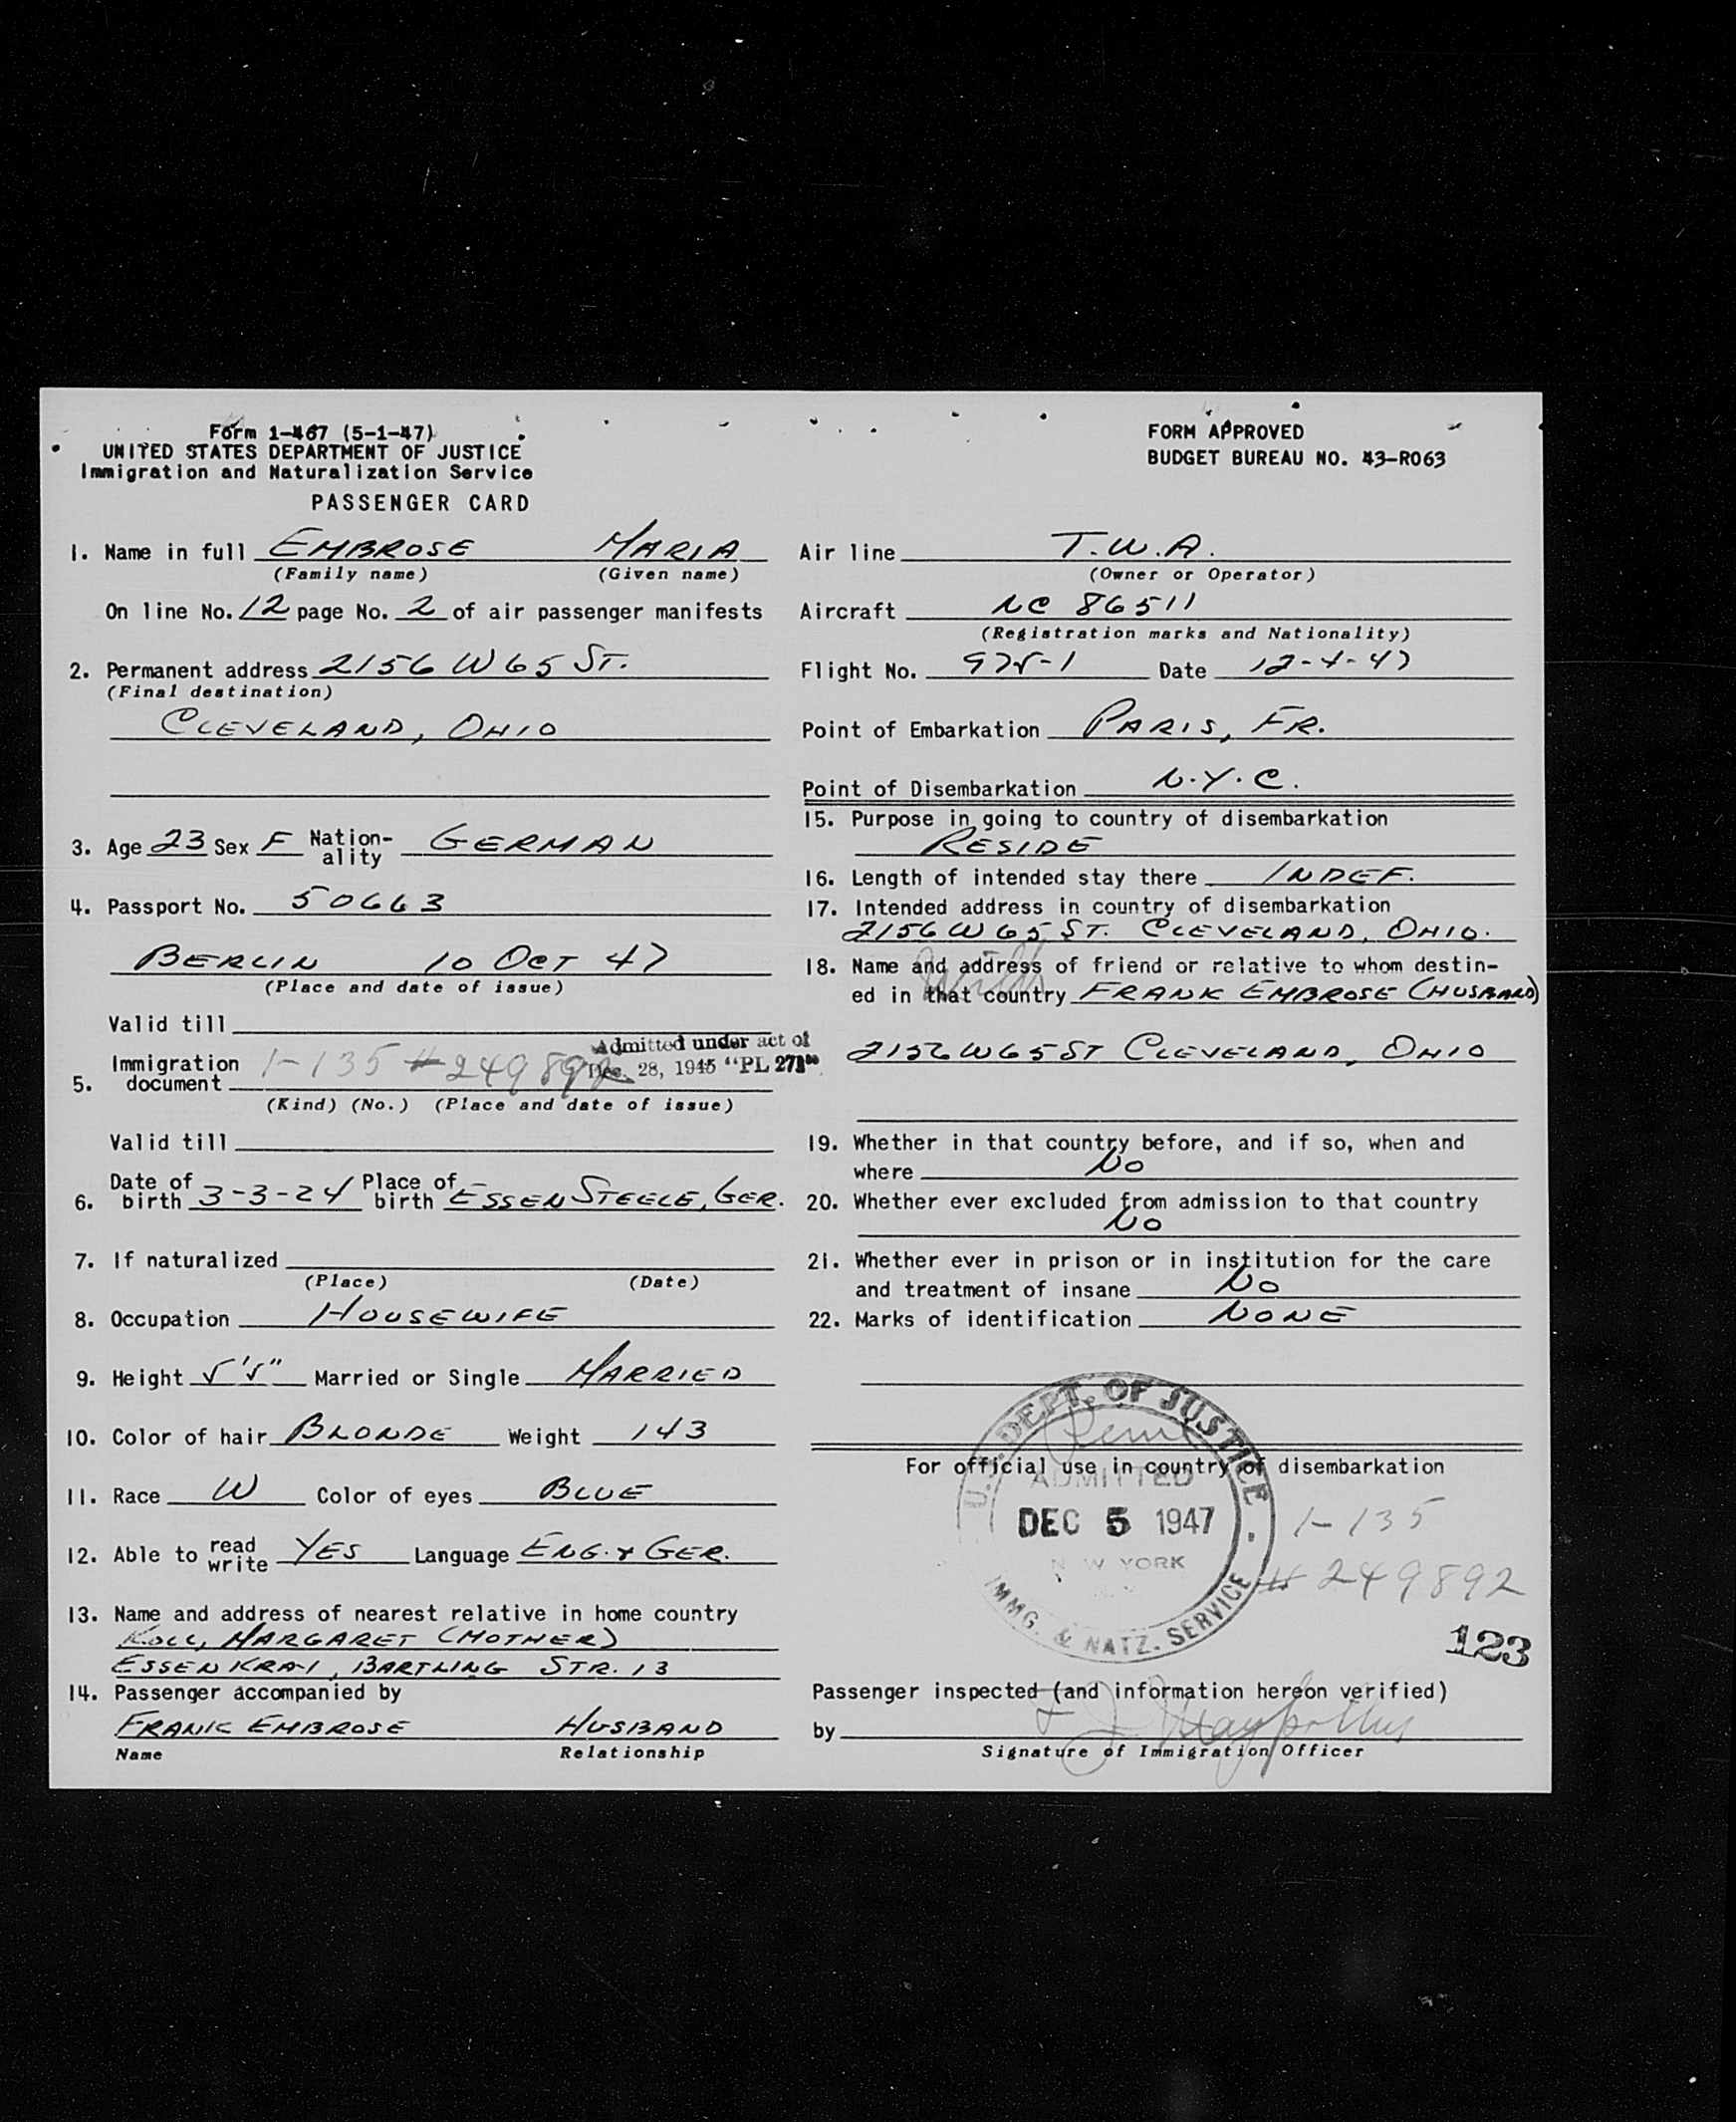 Form 1-467 (5-1-47)
UNITED STATES DEPARTMENT OF JUSTICE
Immigration and Naturalization Service
PASSENGER CARD
FORM APPROVED
BUDGET BUREAU NO. 43-R063
1. Name in full EMBROSE MARIA
(Family name) (Given name)
On line No. 12 page No. 2 of air passenger manifests
2. Permanent address 2156 W 65 ST.
(Final destination)
CLEVELAND, OHIO
3. Age 23 Sex F Nation-ality GERMAN
4. Passport No. 50663
BERLIN 10 OCT 47
(Place and date of issue)
Valid till
Admitted under act of
Dec. 28, 1945 "PL 271"
5. Immigration document 1-135 #249892
(Kind) (No.) (Place and date of issue)
Valid till
6. Date of birth 3-3-24 Place of birth ESSEN STEELE, GER.
7. If naturalized
(Place) (Date)
8. Occupation HOUSEWIFE
9. Height 5'5" Married or Single MARRIED
10. Color of hair BLONDE Weight 143
11. Race W Color of eyes BLUE
12. Able to read write YES Language ENG. & GER.
13. Name and address of nearest relative in home country
KOLL, MARGARET (MOTHER)
ESSEN KRAI, BARTLING STR. 13
14. Passenger accompanied by
FRANK EMBROSE HUSBAND
Name Relationship
Air line T.W.A.
(Owner or Operator)
Aircraft NC 86511
(Registration marks and Nationality)
Flight No. 975-1 Date 12-4-47
Point of Embarkation PARIS, FR.
Point of Disembarkation N.Y.C.
15. Purpose in going to country of disembarkation
RESIDE
16. Length of intended stay there INDEF.
17. Intended address in country of disembarkation
2156 W 65 ST. CLEVELAND, OHIO.
18. Name and address of friend or relative to whom destin-
ed in that country FRANK EMBROSE (HUSBAND)
2156 W 65 ST CLEVELAND, OHIO
19. Whether in that country before, and if so, when and
where NO
20. Whether ever excluded from admission to that country
NO
21. Whether ever in prison or in institution for the care
and treatment of insane NO
22. Marks of identification NONE
For official use in country of disembarkation
U.S. DEPT. OF JUSTICE
ADMITTED
DEC 5 1947
NEW YORK
IMMG. & NATZ. SERVICE
1-135
# 249892
123
Passenger inspected (and information hereon verified)
by
Signature of Immigration Officer